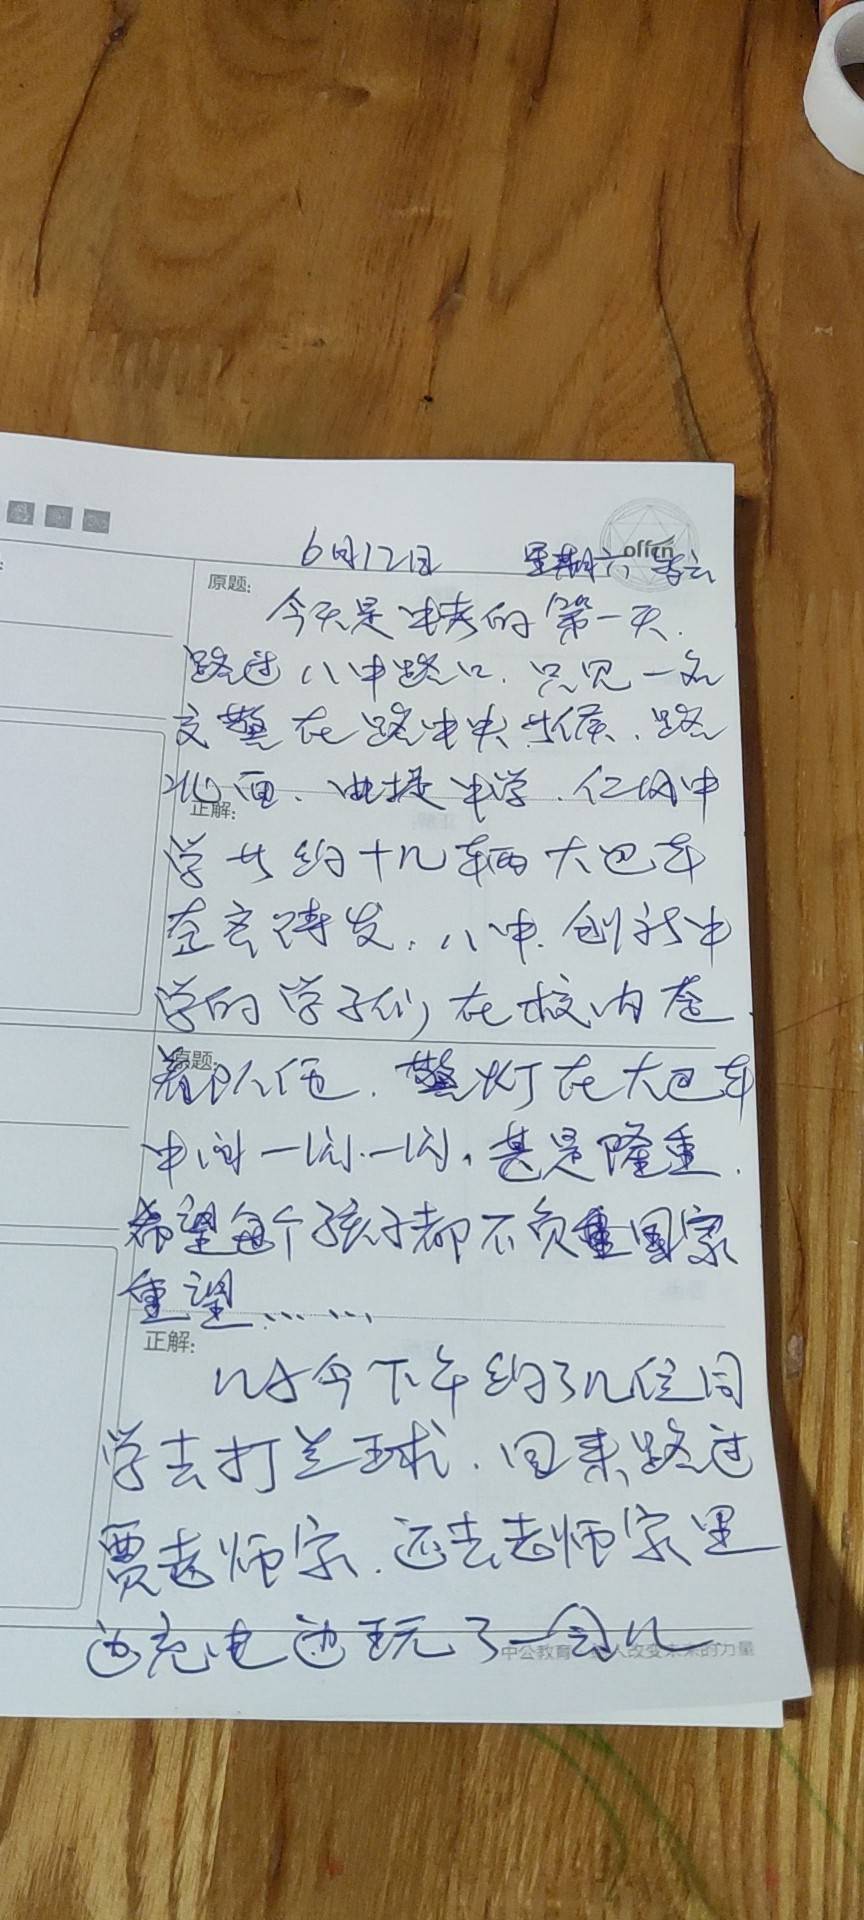 offcn
6月12日 星期六 多云
原题:
今天是中考的第一天.
路过八中路口.只见一名
交警在路中央指挥、路
北面、曲堤中学.仁风中
学共约十几辆大巴车
整装待发.八中.创新中
学的学子们在校内整
原题:
着队伍.警灯在大巴车
中间一闪一闪,甚是隆重.
希望每个孩子都不负国家
重望……
正解:
正解:
儿子今下午约了几位同
学去打兰球.回来路过
贾老师家.还去老师家里
边充电边玩了一会儿
中公教育 给人改变未来的力量